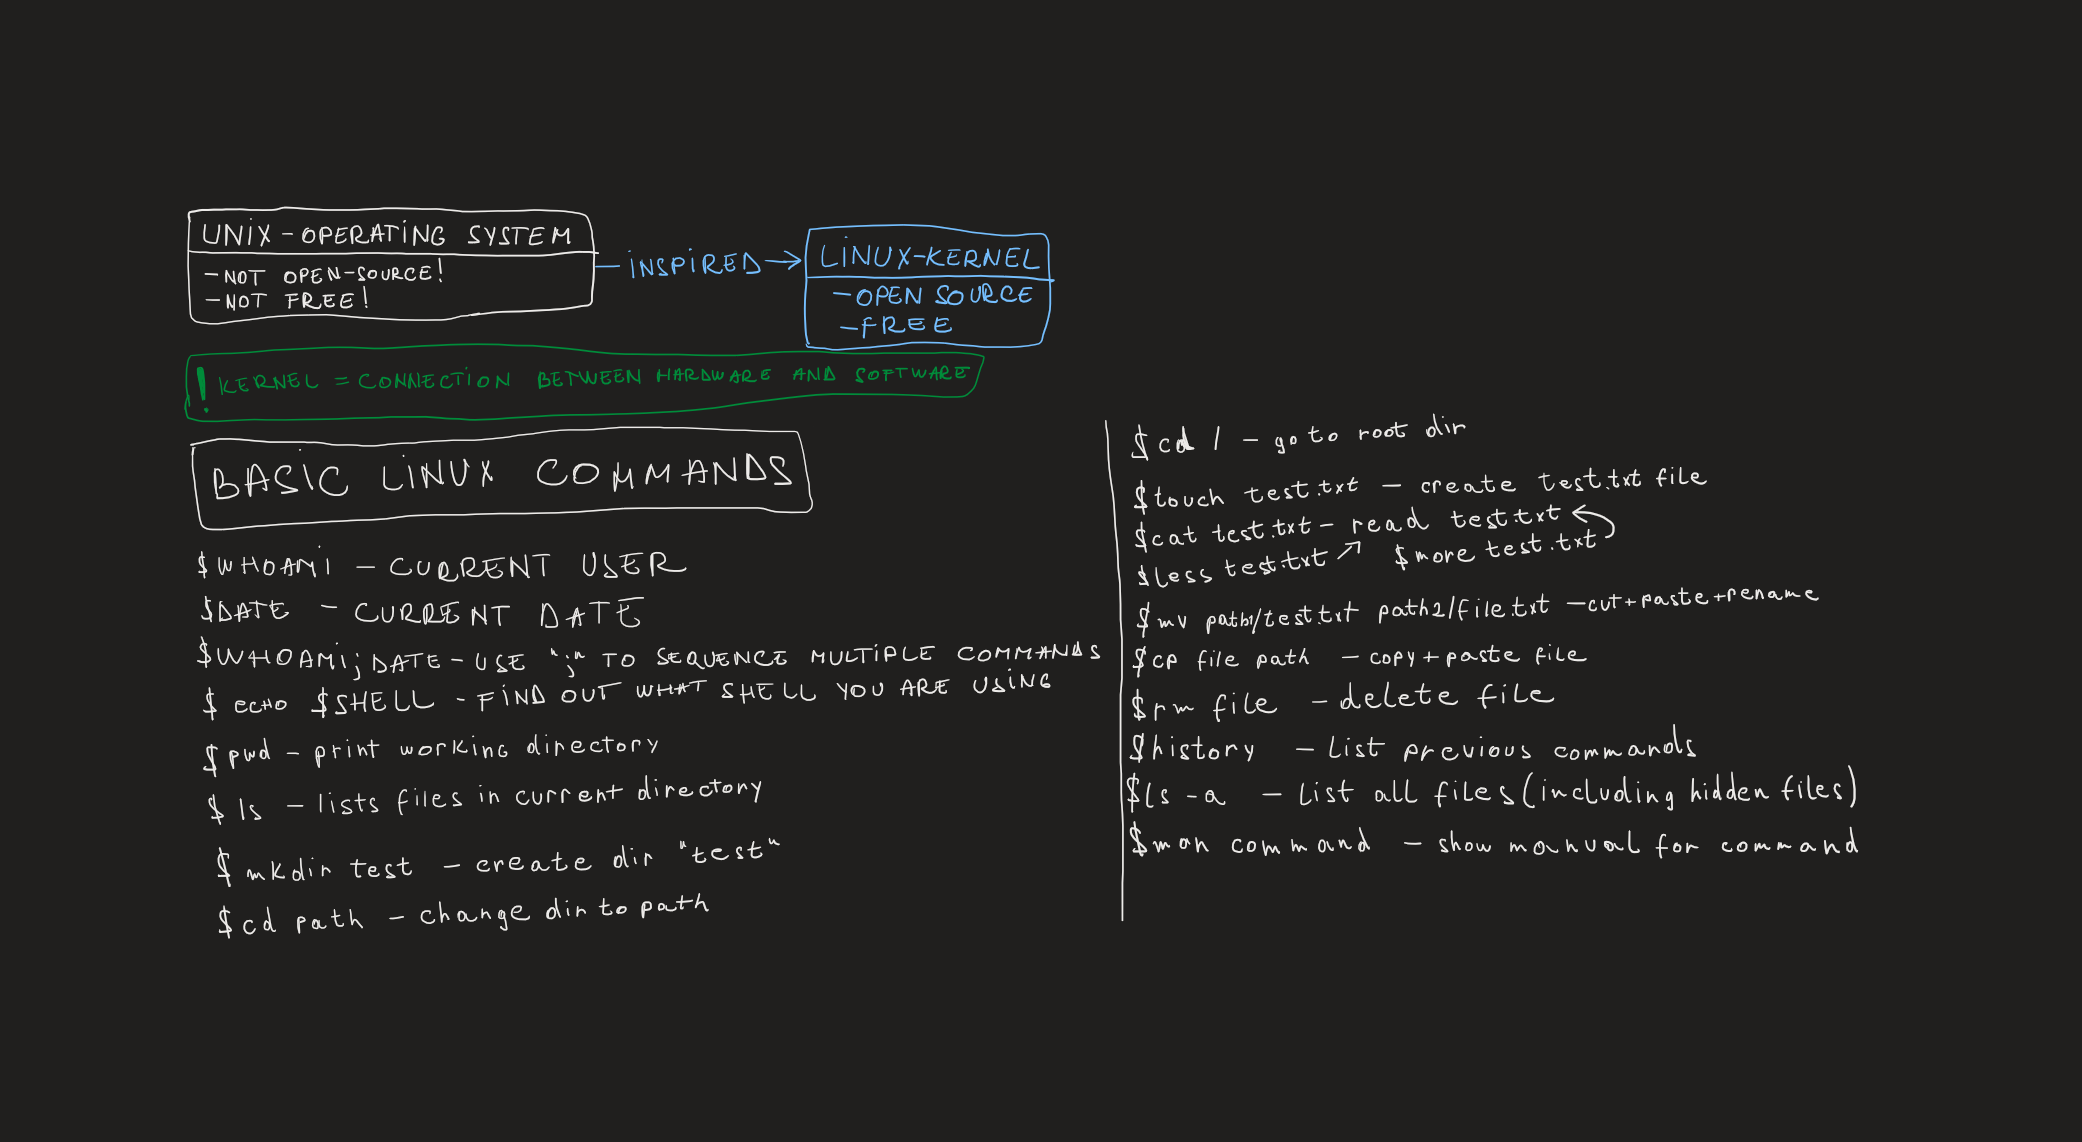 UNIX-OPERATING SYSTEM
-NOT OPEN-SOURCE!
-NOT FREE!
INSPIRED
LINUX-KERNEL
-OPEN SOURCE
-FREE
! KERNEL = CONNECTION BETWEEN HARDWARE AND SOFTWARE
BASIC LINUX COMMANDS
$WHOAMI - CURRENT USER
$DATE - CURRENT DATE
$WHOAMI;DATE - USE ";" TO SEQUENCE MULTIPLE COMMANDS
$ ECHO $SHELL - FIND OUT WHAT SHELL YOU ARE USING
$ pwd - print working directory
$ ls - lists files in current directory
$ mkdir test - create dir "test"
$cd path - change dir to path
$cd / - go to root dir
$touch test.txt - create test.txt file
$cat test.txt - read test.txt
$less test.txt $more test.txt
$mv path1/test.txt path2/file.txt -cut+paste+rename
$cp file path - copy+paste file
$rm file - delete file
$history - List previous commands
$ls -a - List all files (including hidden files)
$man command - show manual for command